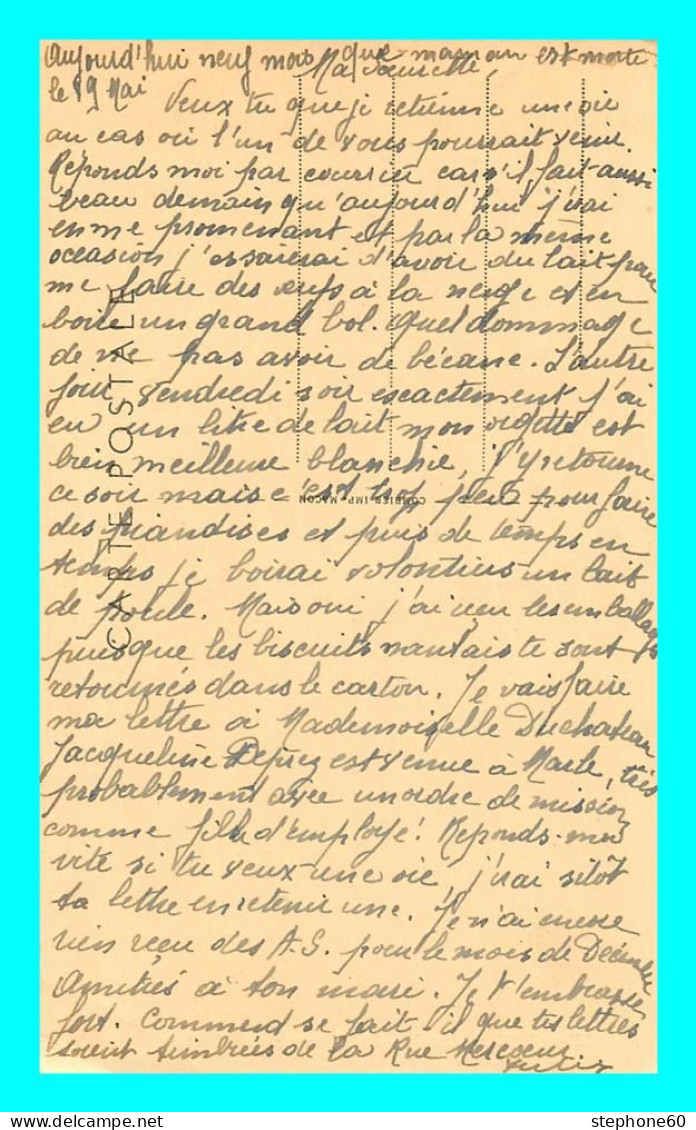 Aujourd'hui neuf mois que maman est morte
le 19 Mai
Ma sœurette,
Veux tu que je retienne une oie
au cas où l'un de vous pourrait venir.
Réponds moi par courrier car s'il fait aussi
beau demain qu'aujourd'hui j'irai
en me promenant et par la même
occasion j'essaierai d'avoir du lait pour
me faire des œufs à la neige et en
boire un grand bol. Quel dommage
de ne pas avoir de bécane. L'autre
jour, vendredi soir exactement j'ai
eu un litre de lait mon est
bien meilleure blanchie, j'y retourne
ce soir mais c'est trop peu pour faire
des friandises et puis de temps en
temps je boirai volontiers un lait
de poule. Mais oui j'ai reçu les emballages
puisque les biscuits nantais te sont
retournés dans le carton. Je vais faire
ma lettre à Mademoiselle Duchateau
Jacqueline Deprez est venue à Marle, très
probablement avec un ordre de mission
comme fille d'employé! Réponds-moi
vite si tu veux une oie, j'irai sitôt
ta lettre en retenir une. Je n'ai encore
rien reçu des A.S. pour le mois de Décembre
Amitiés à ton mari. Je t'embrasse
fort. Comment se fait il que tes lettres
soient timbrées de la Rue Mercœur
CARTE POSTALE
COMBIER IMP. MACON
stephone60